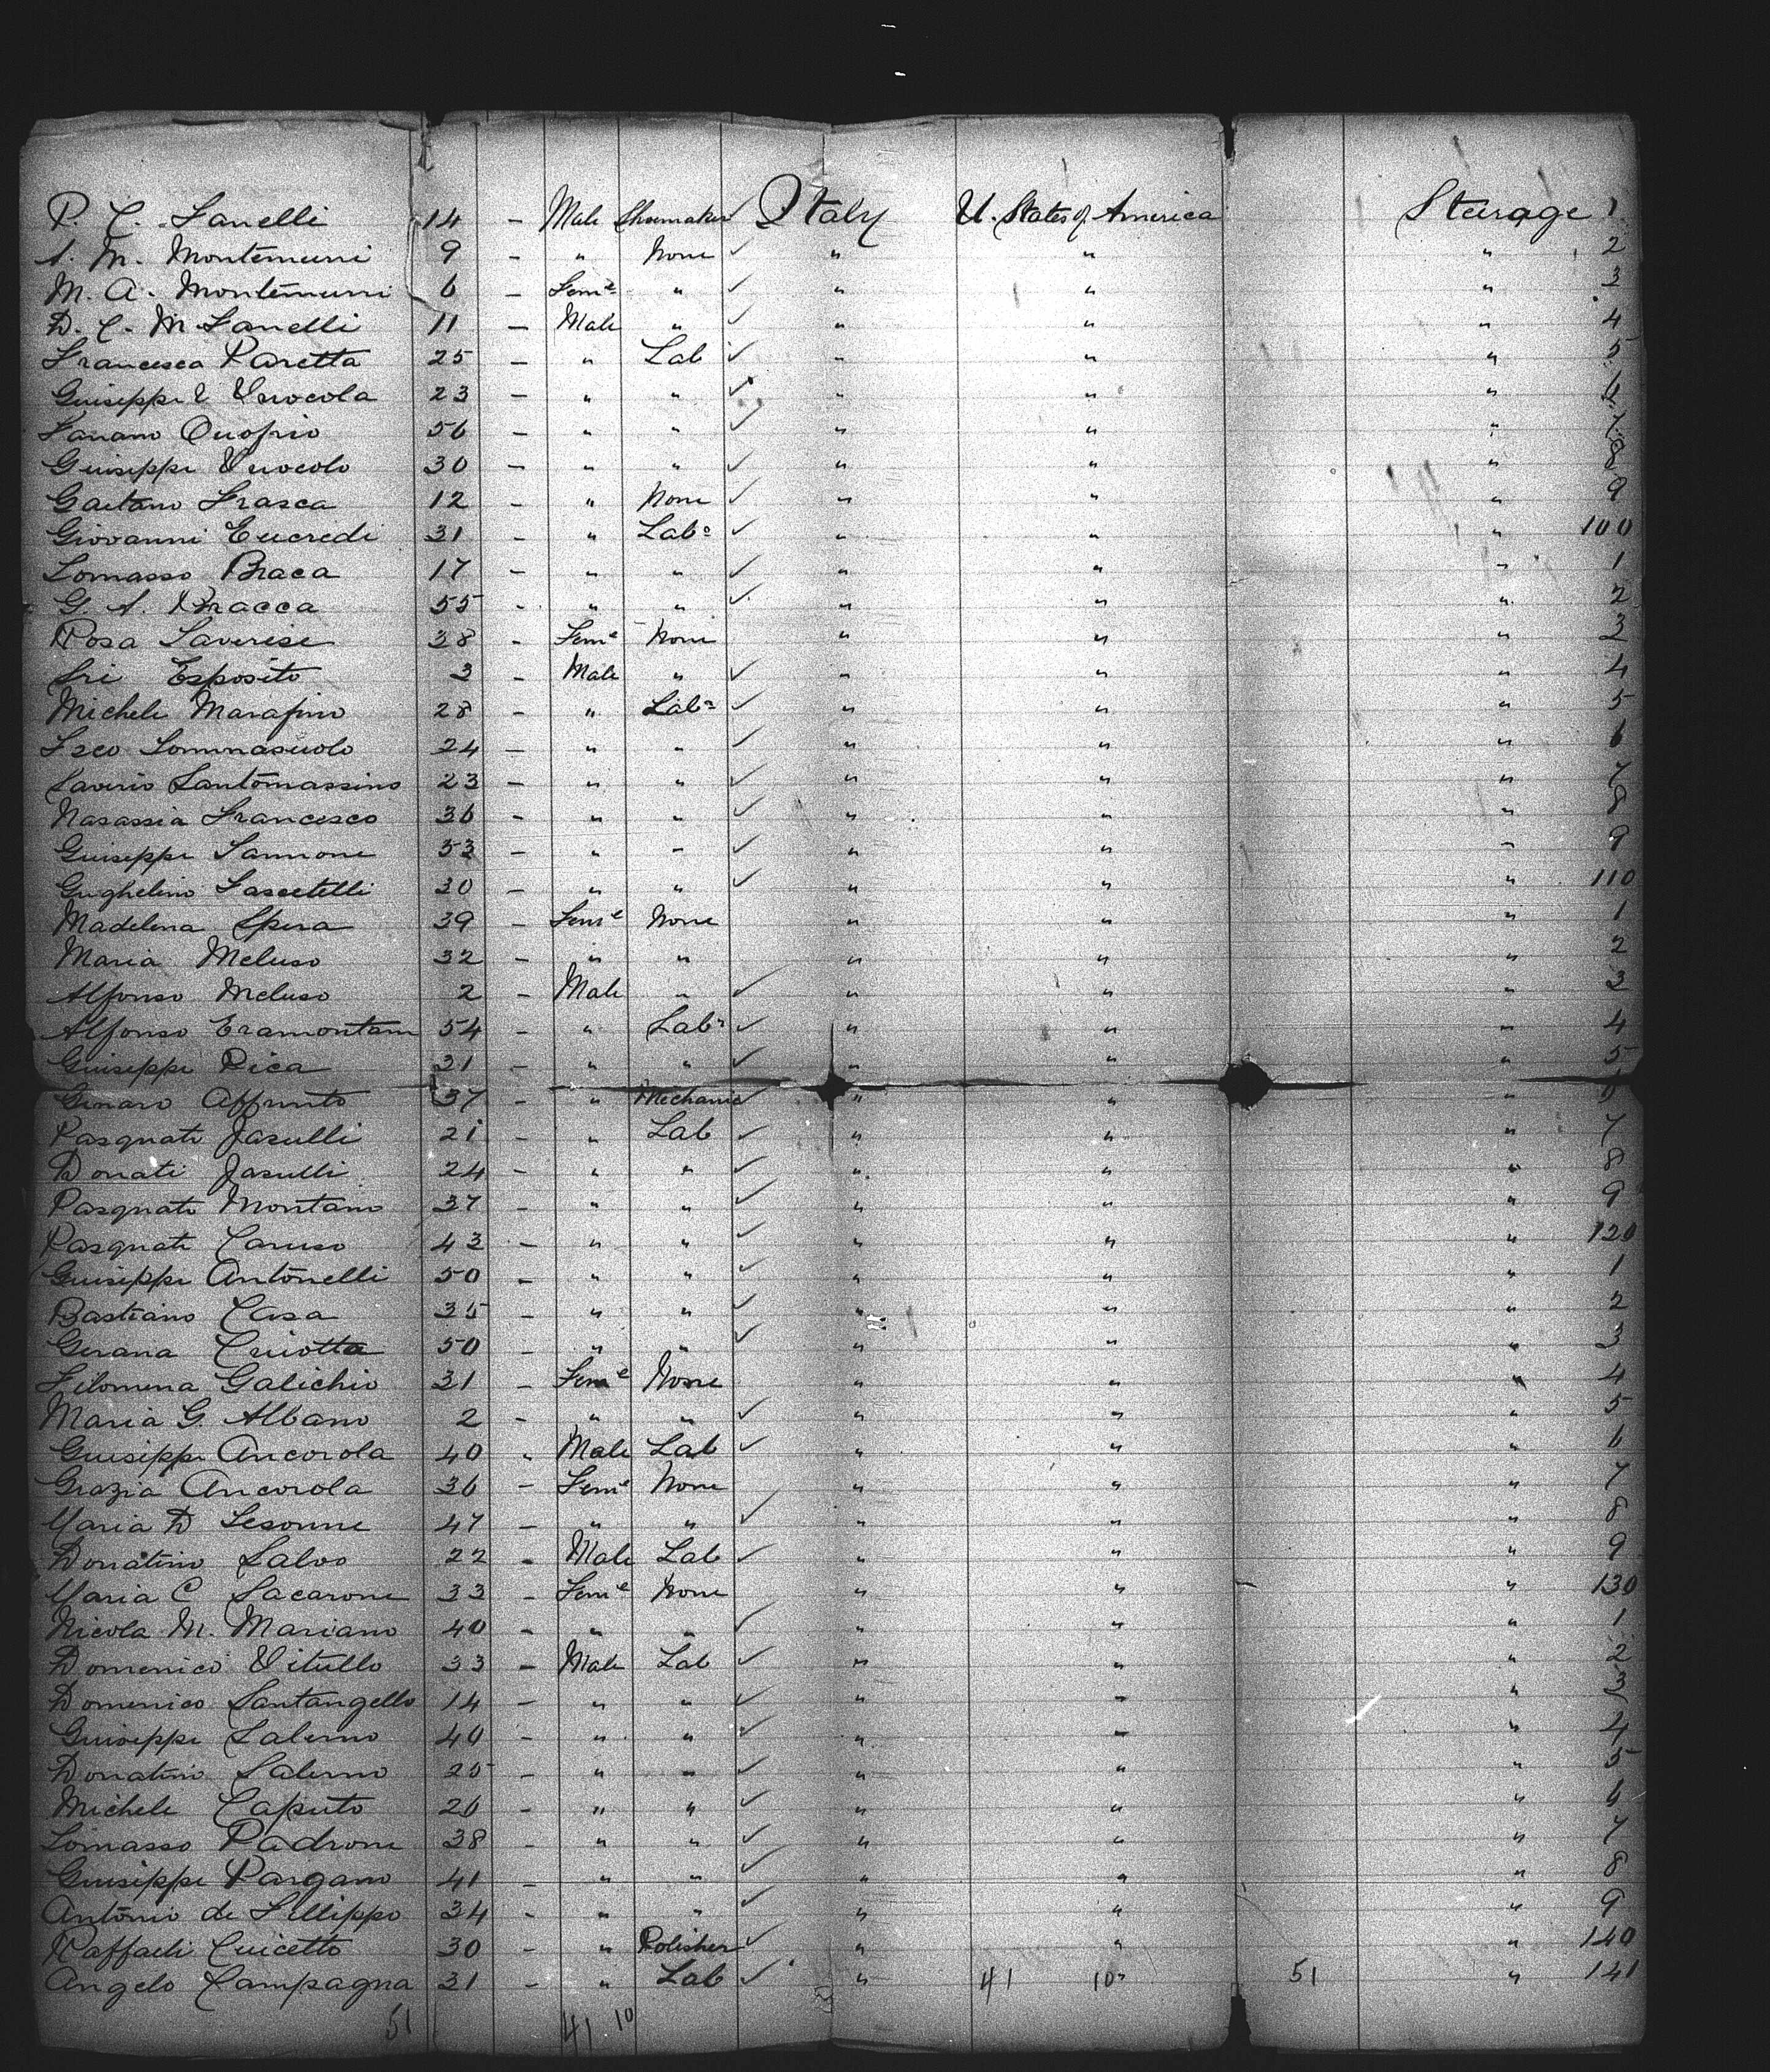 P. C. Fanelli 14 - Male Shoemaker ✓ Italy U. States of America Steerage 1
A. M. Montemuri 9 - " None ✓ " " " 2
M. A. Montemuri 6 - Feme " ✓ " " " 3
D. C. M Fanelli 11 - Male " ✓ " " " 4
Francesca Paretta 25 - " Lab ✓ " " " 5
Guiseppe 23 - " " ✓ " " " 6
56 - " " ✓ " " " 7
Guiseppe 30 - " " ✓ " " " 8
Gaetano Frasca 12 - " None ✓ " " " 9
Giovanni Eucredi 31 - " Labr ✓ " " " 100
Tomasso Braca 17 - " " ✓ " " " 1
G. A. Bracca 55 - " " ✓ " " " 2
Rosa Saverise 38 - Feme None " " " 3
Esposito 3 - Male " ✓ " " " 4
Michele Marafino 28 - " Labr ✓ " " " 5
Fsco Tommasuolo 24 - " " ✓ " " " 6
Saverio Santomassino 23 - " " ✓ " " " 7
Nasassia Francesco 36 - " " ✓ " " " 8
Guiseppe Iannone 53 - " " ✓ " " " 9
Gughelino Lascetelli 30 - " " ✓ " " " 110
Madelena Spera 39 - Feme None " " " 1
Maria Meluso 32 - " " " " " 2
Alfonso Meluso 2 - Male " ✓ " " " 3
Alfonso Tramontam 54 - " Labr ✓ " " " 4
Guiseppe Pica 31 - " " ✓ " " " 5
Genaro Affrunto 37 - " Mechanic ✓ " " " 6
Pasquate Jasulli 21 - " Lab ✓ " " " 7
Donati Jasulli 24 - " " ✓ " " " 8
Pasquate Montano 37 - " " ✓ " " " 9
Pasquate Caruso 43 - " " ✓ " " " 120
Guiseppe Antonelli 50 - " " ✓ " " " 1
Bastiano Casa 35 - " " ✓ " " " 2
Gerana Criotta 50 - " " ✓ " " " 3
Filomena Galichio 31 - Feme None " " " 4
Maria G. Albano 2 - " " ✓ " " " 5
Guiseppe Ancorola 40 - Male Lab ✓ " " " 6
Grazia Ancorola 36 - Feme None " " " 7
Maria D Lesonne 47 - " " ✓ " " " 8
Donatino Salvo 22 - Male Lab ✓ " " " 9
Maria C Sacarone 33 - Feme None " " " 130
Nicola M. Mariano 40 - " " ✓ " " " 1
Domenico Vitullo 33 - Male Lab ✓ " " " 2
Domenico Santangello 14 - " " ✓ " " " 3
Guiseppe Salerno 40 - " " ✓ " " " 4
Donatino Salerno 25 - " " ✓ " " " 5
Michele Caputo 26 - " " ✓ " " " 6
Tomasso Padrone 38 - " " ✓ " " " 7
Guiseppe Pargano 41 - " " ✓ " " " 8
Antonio de Fillippo 34 - " " ✓ " " " 9
Raffaeli Cuicetto 30 - " Polisher ✓ " " " 140
Angelo Campagna 31 - " Lab ✓ " 41 10 51 " 141
51 41 10